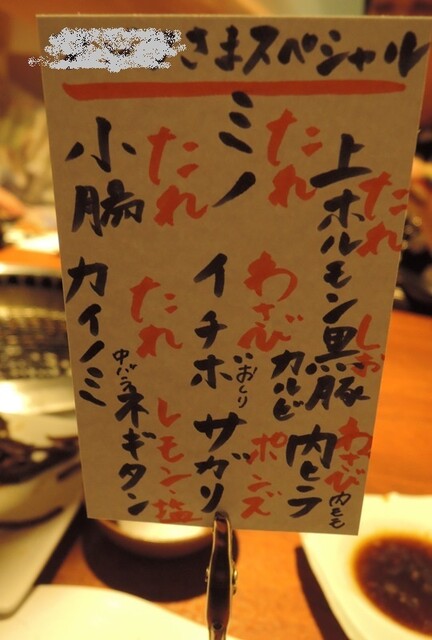 さまスペシャル
上ホルモン たれ
黒豚カルビ しお
内ヒラ 内もも わさび
ミノ たれ
イチボ わさび
サガリ ポンズ
小腸 たれ
カイノミ 中バラ たれ
ネギタン レモン塩